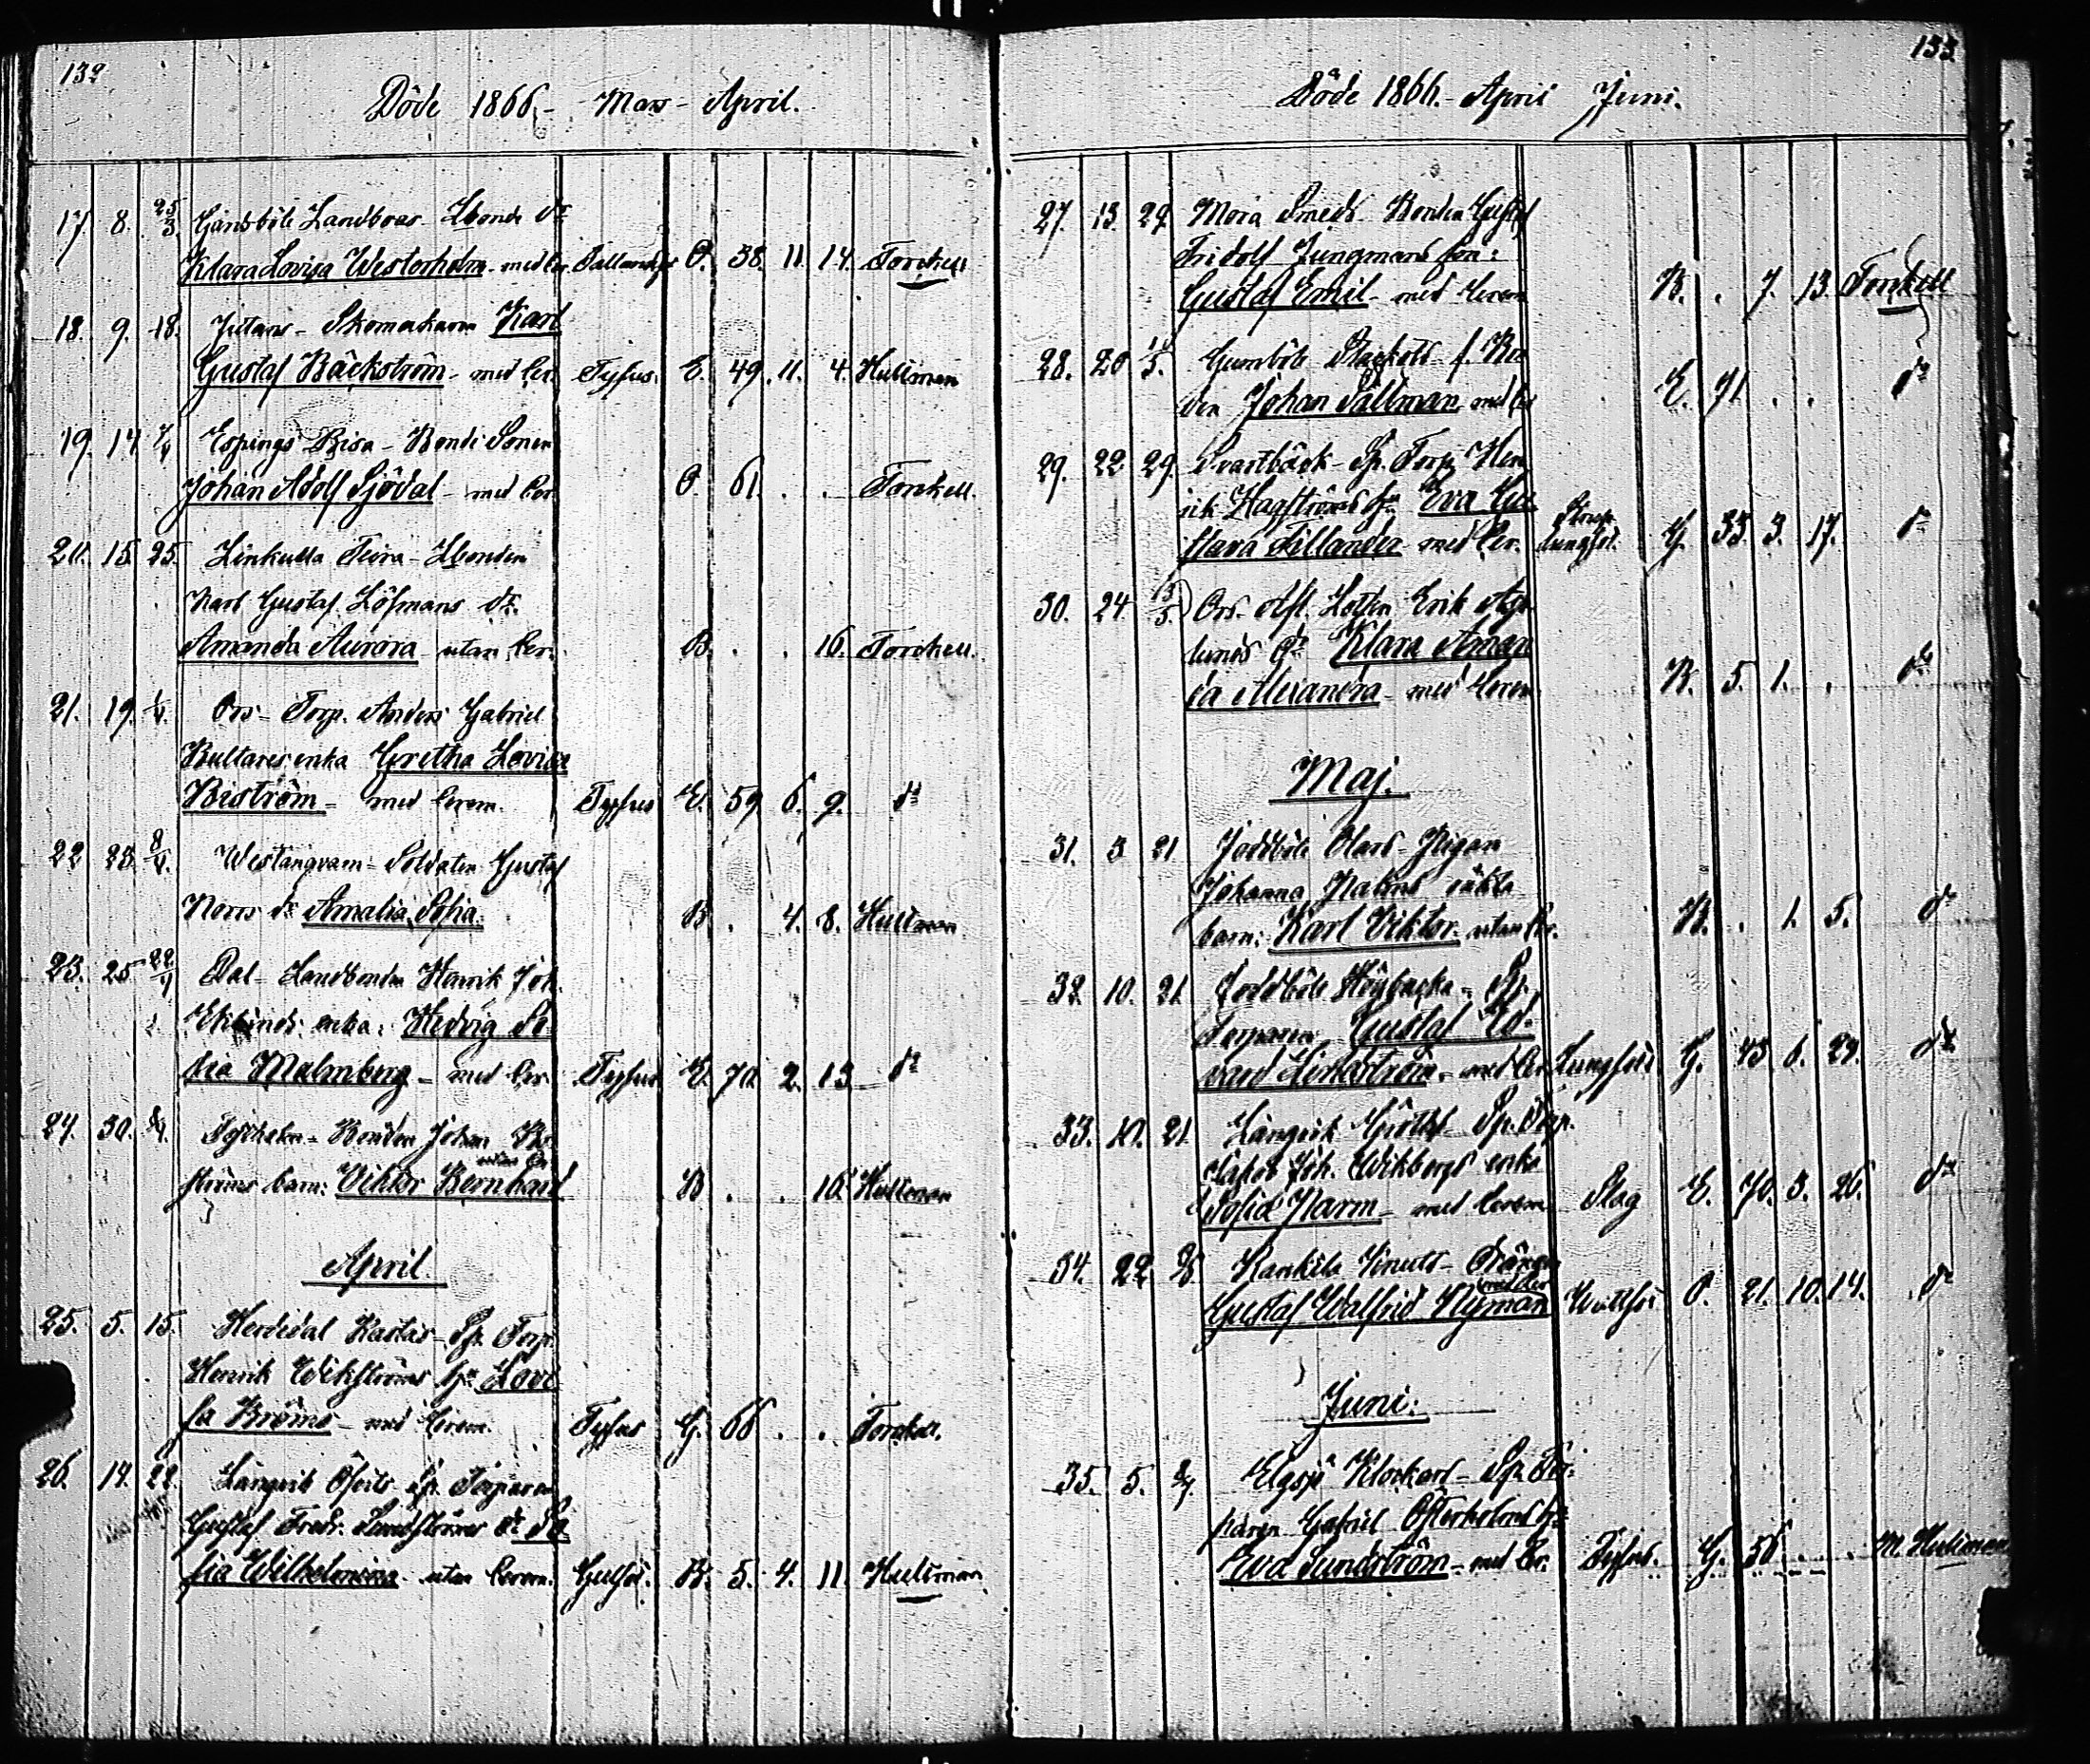 132
Döde 1866. - Mars - April.
17. 8. 25/3. Gårdsböle Landboas Lbonde dr
Klara Lovisa Westerholm - med cer. Fallandes O. 38. 11. 14. Forskell
18. 9. 18. Jutans - Skomakaren Karl
Gustaf Bäckström - med Cer. Tyfus. E. 49. 11. 4. Hultman
19. 14. Espings Bisa - Bonde Sonen
Johan Adolf Sjödal - med Cer. O. 61. . . Forskell.
20. 15. 25. Linkulla Teira - Lbonden
Karl Gustaf Löfmans dr.
Amanda Aurora utan Cer. B. . . 16. Forskell.
21. 19. 1/4. Ors - Torp. Anders Gabriel
Bultares enka Gretha Lovisa
Biström - med Cerem. Tyfus E. 59. 6. 9. do
22 23. 8/4. Westanqvarn - Soldaten Gustaf
Norrs dr Amalia Sofia. B. . 4. 8. Hultman.
23. 25 22/4 Dal - Landbonden Henrik Joh.
Eklunds enka: Hedvig So-
fia Malmberg - med Cer. Tyfus E. 70. 2. 13. do
24. 30. 8/4. - Bonden Johan Bo-
utan Cer
ströms barn: Viktor Bernhard B . . 16. Hultman
April.
25. 5. 15. Herdedal Rastas - Sp. Torp.
Henrik Wikströms h. Lovi-
sa Ekröms - med Cerem. Tyfus G. 66 . . Forskell.
26. 14. 22. Långvik Öfvits Sp. Torparen
Gustaf Fredr. Sundströms dr So-
fia Wilhelmina utan Cerem. Gulsot. B. 5. 4. 11. Hultman
133
Döde 1866. - April Juni.
27. 13 29 Mora Smeds - Bonden Gustaf
Fridolf Jungmans son:
Gustaf Emil - med Cerem B. . 7. 13. Forskell
28. 20 /5. Gumböle Stackols - f. Bon
den Johan Sällman med Cer E. 71 . . do
29. 22 29. Svartbäck - Sp. Torp Hen
rik Hagströms h. Eva Gu-
stava Tillander - med Cer. lungsot. G. 33. 3. 17. do
30. 24. 13/5. Ors. Aft. Lotsen Erik
lunds dr Klara Aman
da Alexandra - med Cerem B. 5. 1. . do
Maj.
31. 3 21 Joddböle Olars - Pigan
Johanna Malms oäkta
barn: Karl Viktor utan Cer. B. . 1. 5. do
32. 10. 21. Joddböle Högbacka - Sp.
Torparen Gustaf Ed-
vard Lindström - med Cer Lungsot G. 43 6. 29. do
33. 10. 21 Långvik Sp. Torp.
Jakob Joh. Wikbergs enka
Sofia Narm - med Cerem Slag E. 70. 3. 26. do
34. 22. Kankila - Drängen
med Cer
Gustaf Walfrid Nyman O. 21. 10. 14. do
Juni:
35. 5. Elgsjö Klockars - Sp. Tor-
paren Gabriel Österholms h.
Eva Sundström - med Cer. Tyfus. G. 56 . . M. Hultman